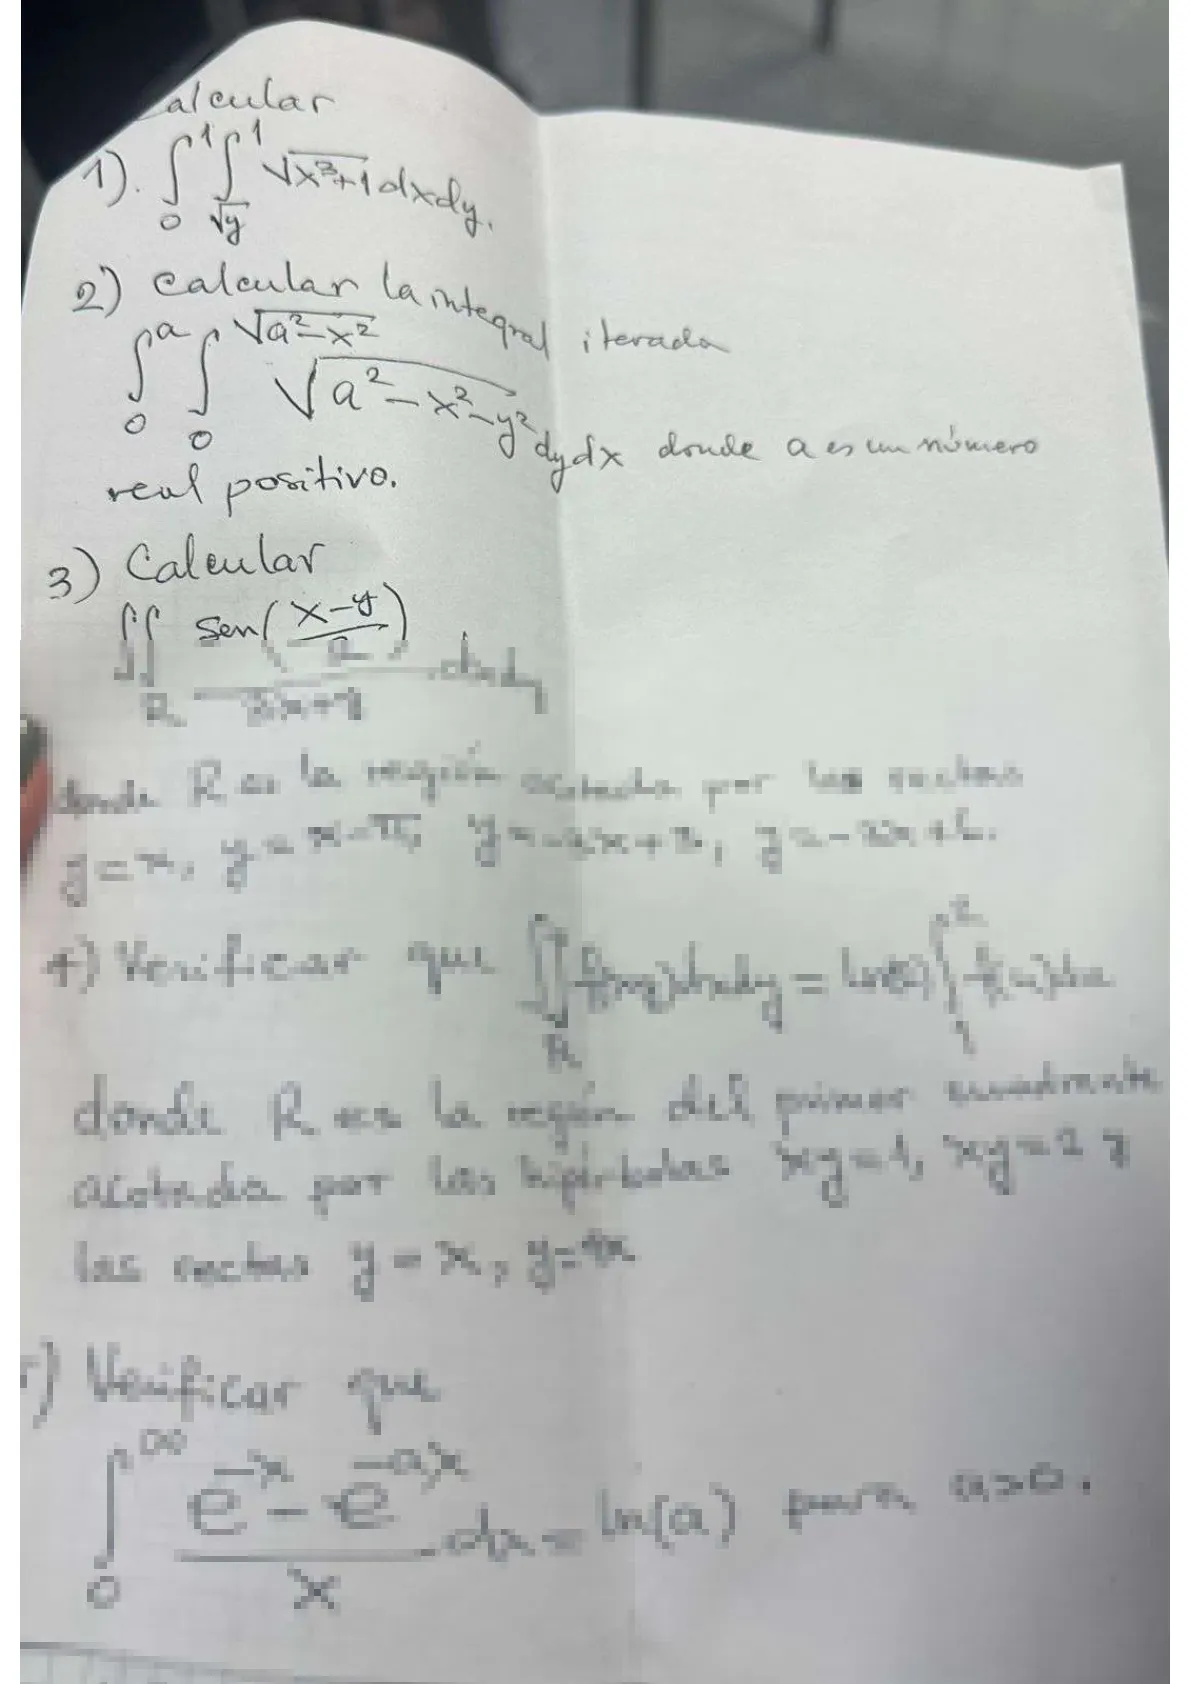 alcular
1). ∫₀¹ ∫_{√y}^1 √(x³+1) dxdy.
2) Calcular la integral iterada
∫₀^a ∫₀^{√(a²-x²)} √(a²-x²-y²) dydx donde a es un número
real positivo.
3) Calcular
∫∫_R sen((x-y)/2) dxdy
donde R es la región acotada por las rectas
y=x, y=x-π, y=-2x+3, y=-2x+6.
4) Verificar que ∫∫_R f(xy)dxdy = ln(2) ∫₁² f(u)du
donde R es la región del primer cuadrante
acotada por las hipérbolas xy=1, xy=2 y
las rectas y=x, y=4x
) Verificar que
∫₀^∞ (e^{-x} - e^{-ax})/x dx = ln(a) para a>0.